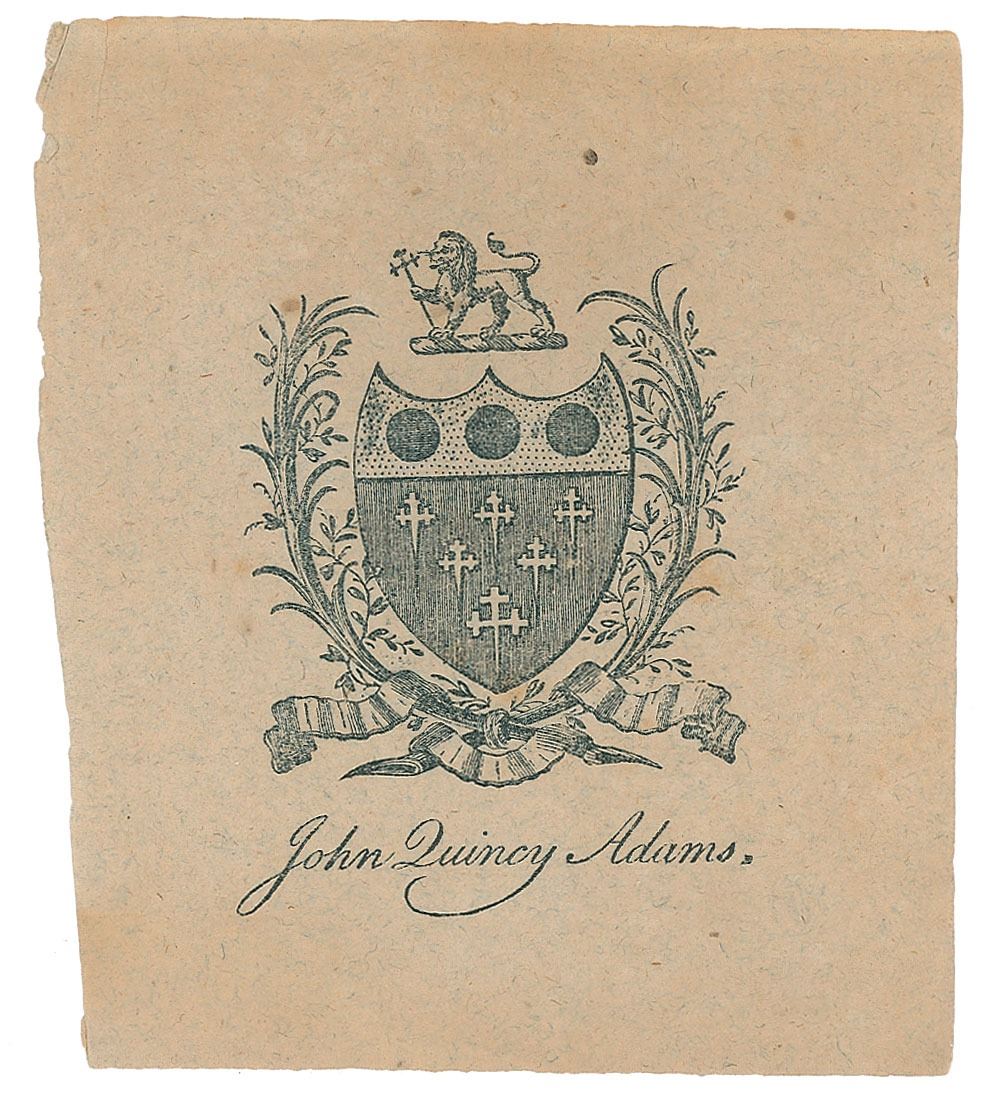 John Quincy Adams.